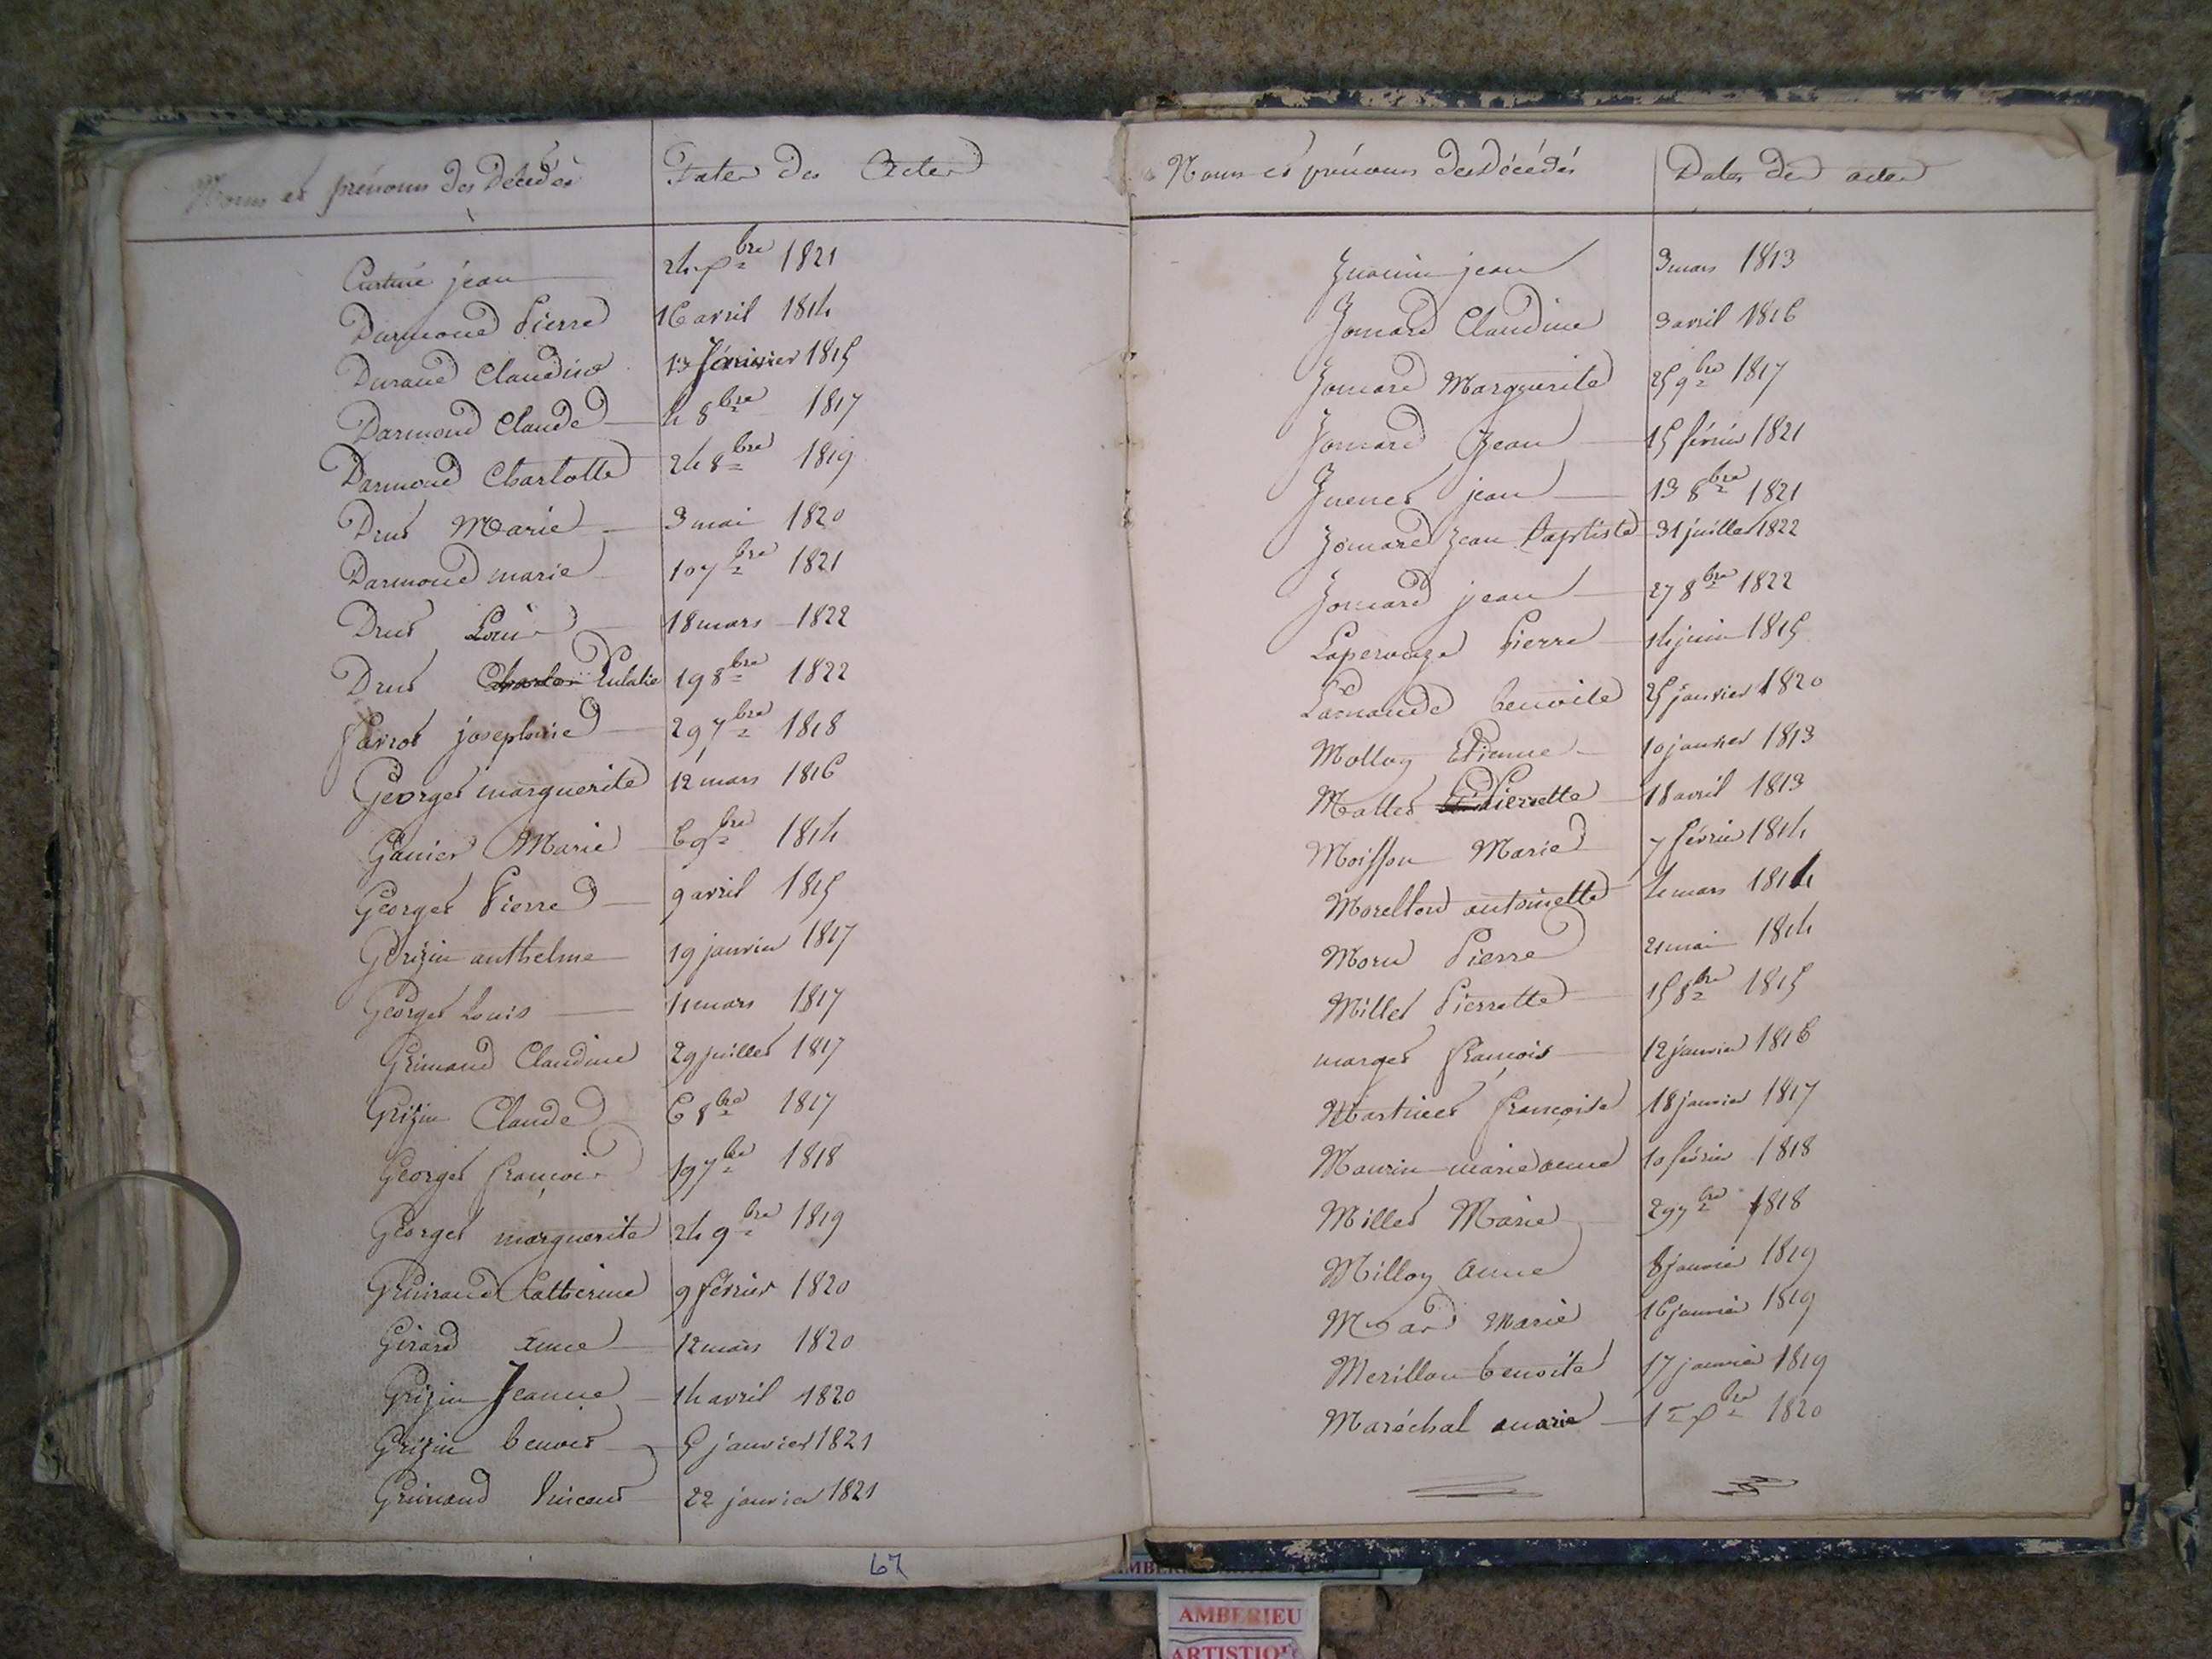 Noms et prénoms des Décédés
Dates des Actes
Curtine jean 24 Xbre 1821
Darmond Pierre 16 avril 1814
Durand Claudine 13 février 1815
Darmond Claude 4 8bre 1817
Darmond Charlotte 24 8bre 1819
Drut Marie 3 mai 1820
Darmond marie 10 7bre 1821
Drut Louis 18 mars 1822
Drut Eulalie 19 8bre 1822
Favrot josephine 29 7bre 1818
Georget marguerite 12 mars 1816
Ganier Marie 6 9bre 1814
Georget Pierre 9 avril 1815
Grizin anthelme 19 janvier 1817
Georget Louis 11 mars 1817
Grimand Claudine 29 juillet 1817
Grizin Claude 6 8bre 1817
Georget françois 19 7bre 1818
Georget marguerite 24 9bre 1819
Grimand Catherine 9 février 1820
Girard anne 12 mars 1820
Grizin Jeanne 14 avril 1820
Grizin benoit 5 janvier 1821
Grimand Vincent 22 janvier 1821
67
Noms et prénoms des Décédés
Dates des actes
jean 3 mars 1813
Jomard Claudine 3 avril 1816
Jomard Marguerite 25 9bre 1817
Jomard Jean 15 février 1821
Juenet jean 13 8bre 1821
Jomard Jean Baptiste 31 juillet 1822
Jomard jean 27 8bre 1822
Laperouze Pierre 14 juin 1815
benoite 25 janvier 1820
Molloy Etienne 10 janvier 1813
Mallet Pierrette 18 avril 1813
Moisson Marie 7 février 1814
Morelton antoinette 4 mars 1814
Pierre 21 mai 1814
Millet Pierrette 15 8bre 1815
marget françois 12 janvier 1816
Martinet françoise 18 janvier 1817
Maurin marie anne 10 février 1818
Millet Marie 29 7bre 1818
Milloy anne 8 janvier 1819
Marie 16 janvier 1819
Merillon benoite 17 janvier 1819
Maréchal marie 1er Xbre 1820
AMBERIEU
ARTISTIQUE